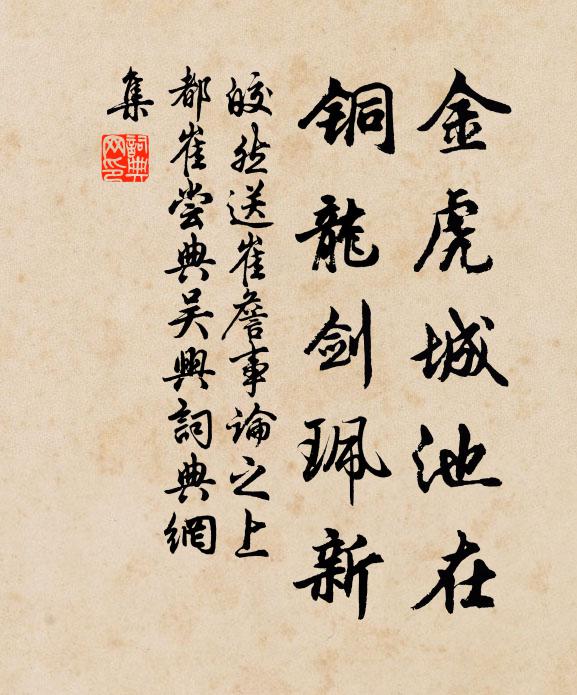 金虎城池在
铜龍剑珮新
皎然送崔詹事論之上
都崔尝典吴興詞典網
集
詞典网印